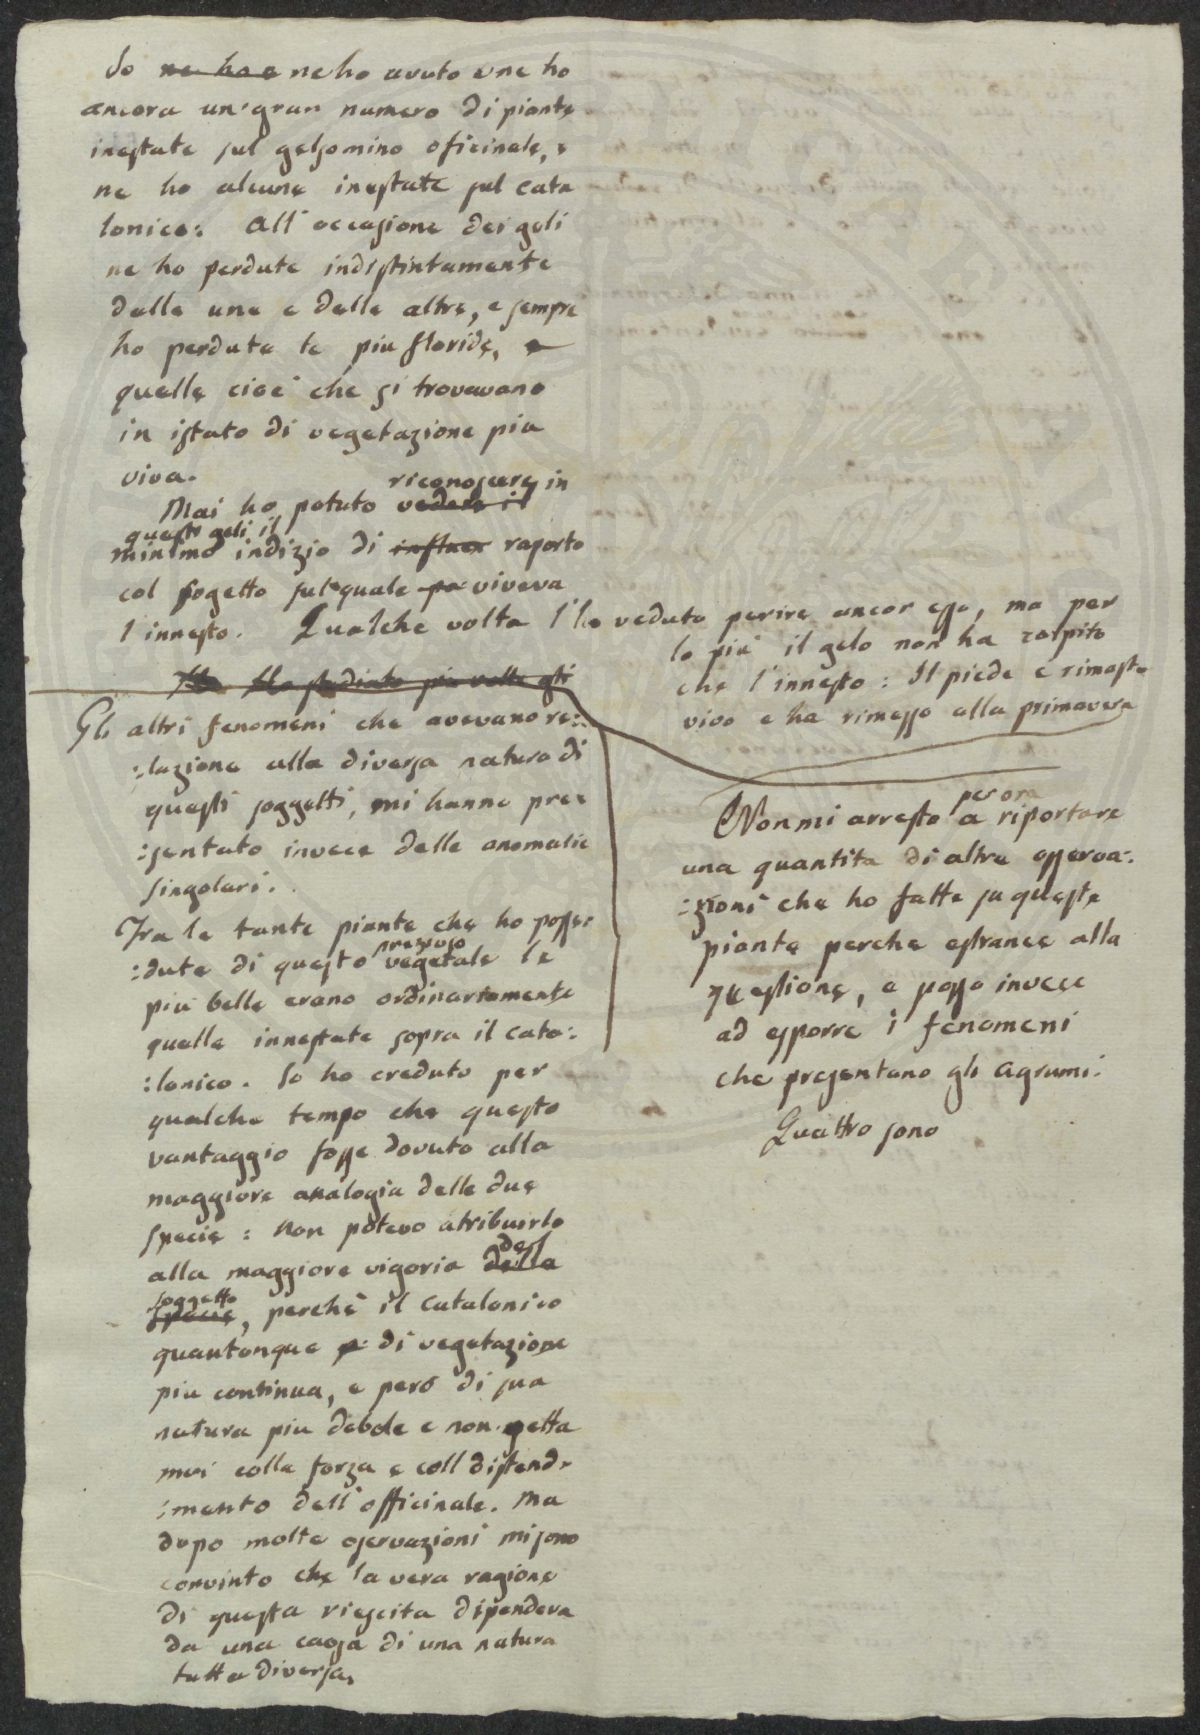 Io ne ho e ne ho avuto e ne ho
ancora un'gran numero di piante
inestate sul gelsomino oficinale, e
ne ho alcune inestate sul cata
lonico: All'occasione dei geli
ne ho perdute indistintamente
delle une e delle altre, e sempre
ho perduta le piu floride, e
quelle cioe' che si trovavano
in istato di vegetazione piu
viva.
riconoscere in
Mai ho potuto vedere il
questi geli il
minimo indizio di influen raporto
col sogetto sul quale po viveva
l'innesto. Qualche volta l'ho veduto perire ancor esso, ma per
lo piu il gelo non ha colpito
che l'innesto: Il piede e rimasto
vivo e ha rimesso alla primavera
Ho studiato piu volte gli
Gli altri fenomeni che avevano re:
:lazione alla diversa natura di
questi soggetti, mi hanno pre:
:sentato invece delle anomalie
singolari.
Tra le tante piante che ho posse:
prezioso
:dute di questo vegetale le
piu belle erano ordinariamente
quelle innestate sopra il cata:
:lonico. Io ho creduto per
qualche tempo che questo
vantaggio fosse dovuto alla
maggiore analogia delle due
specie: Non potevo atribuirlo
del
alla maggiore vigoria della
soggetto
specie, perchè il Catalonico
quantonque p di vegetazione
piu continua, e però di sua
natura piu debole e non getta
mai colla forza e coll distend:
:mento dell'officinale. Ma
dopo molte oservazioni mi sono
convinto che la vera ragione
di questa riescita dipendeva
da una caosa di una natura
tutta diversa.
per ora
Non mi arresto a riportare
una quantita di altre osserva:
:zioni che ho fatte su queste
piante perche estranee alla
questione, e passo invece
ad esporre i fenomeni
che presentano gli Agrumi.
Quattro sono